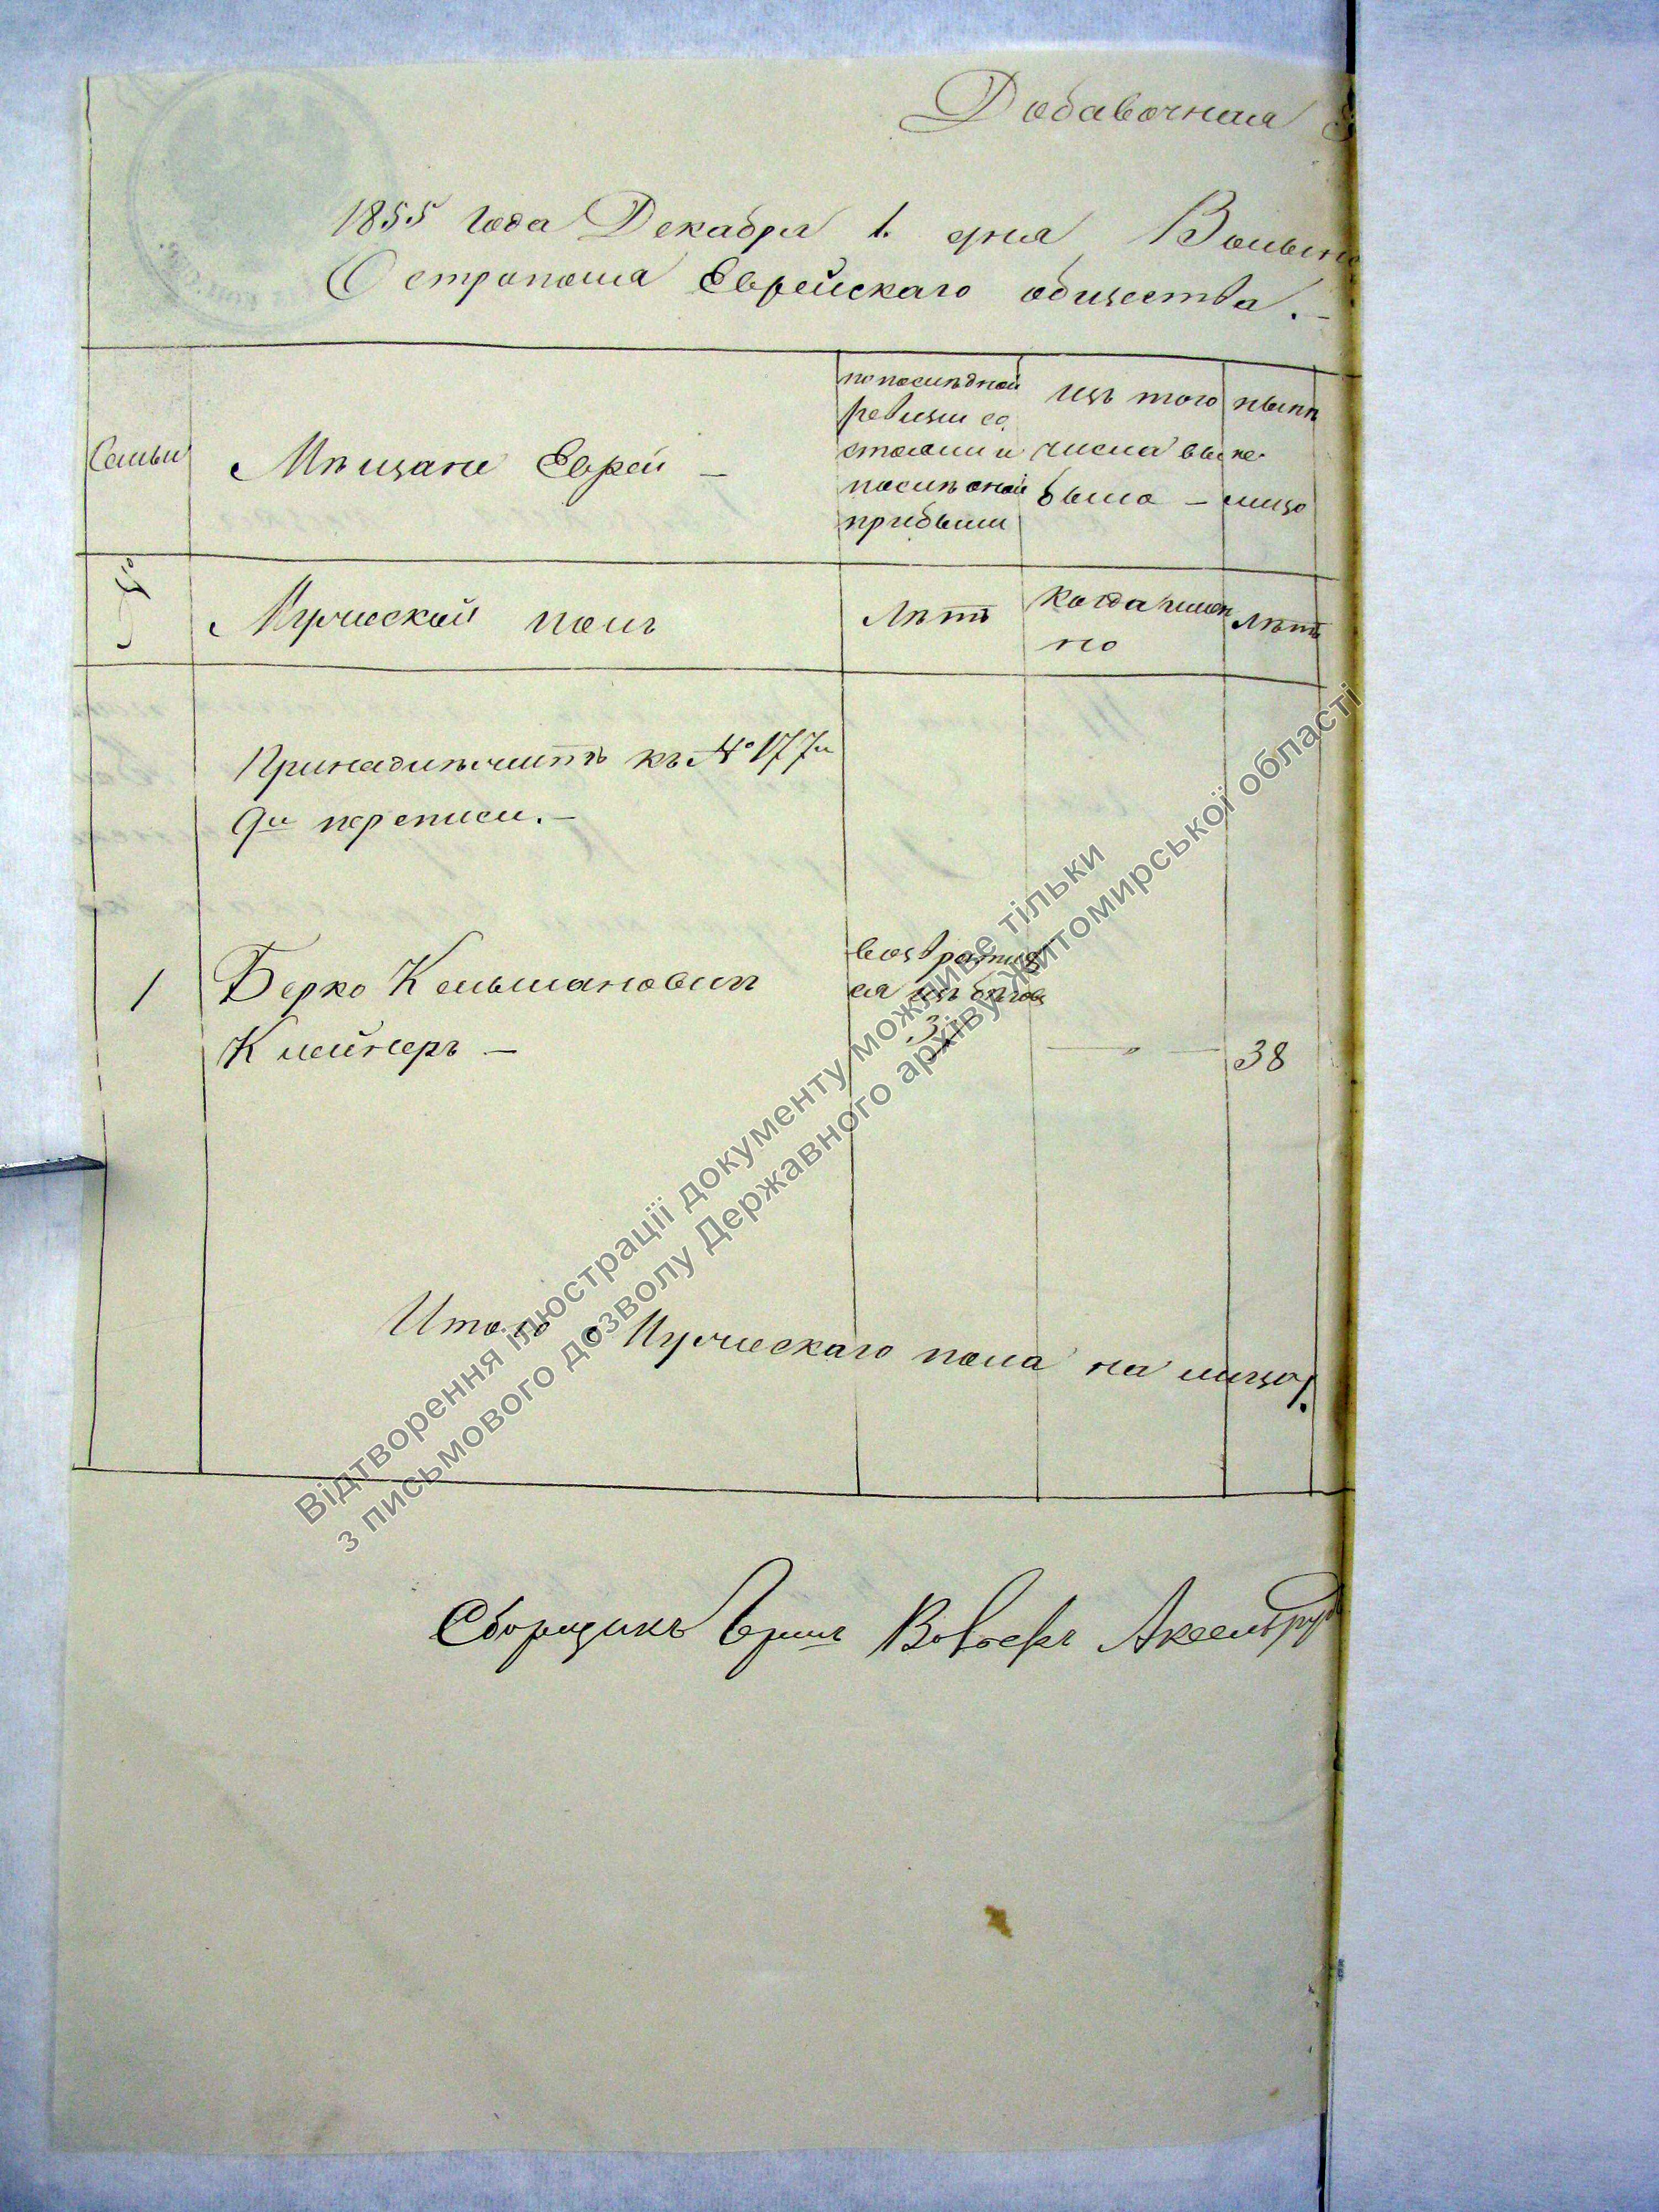 Добавочная
1855 года Декабря 1. дня Волынс
Острополя Еврейскаго общества.—
Семьи
Мѣщане Евреи —
по послѣдней
ревизіи со
стояли и
послѣ оной
прибыли
изъ того
числа вы
было —
нынѣ
на
лицо
№
Мужеской полъ
Лѣтъ
когда имен
но
Лѣтъ
Принадлѣжитъ къ № 177й
9й переписи.—
1
Берко Кельмановичъ
Клейнеръ —
возвратил
ся изъ бѣгов
— " —
38
Итого Мужескаго пола на лицо 1.
Сборщикъ Вольфъ Аксельру
Відтворення ілюстрації документу можливе тільки
з письмового дозволу Державного архіву Житомирської області